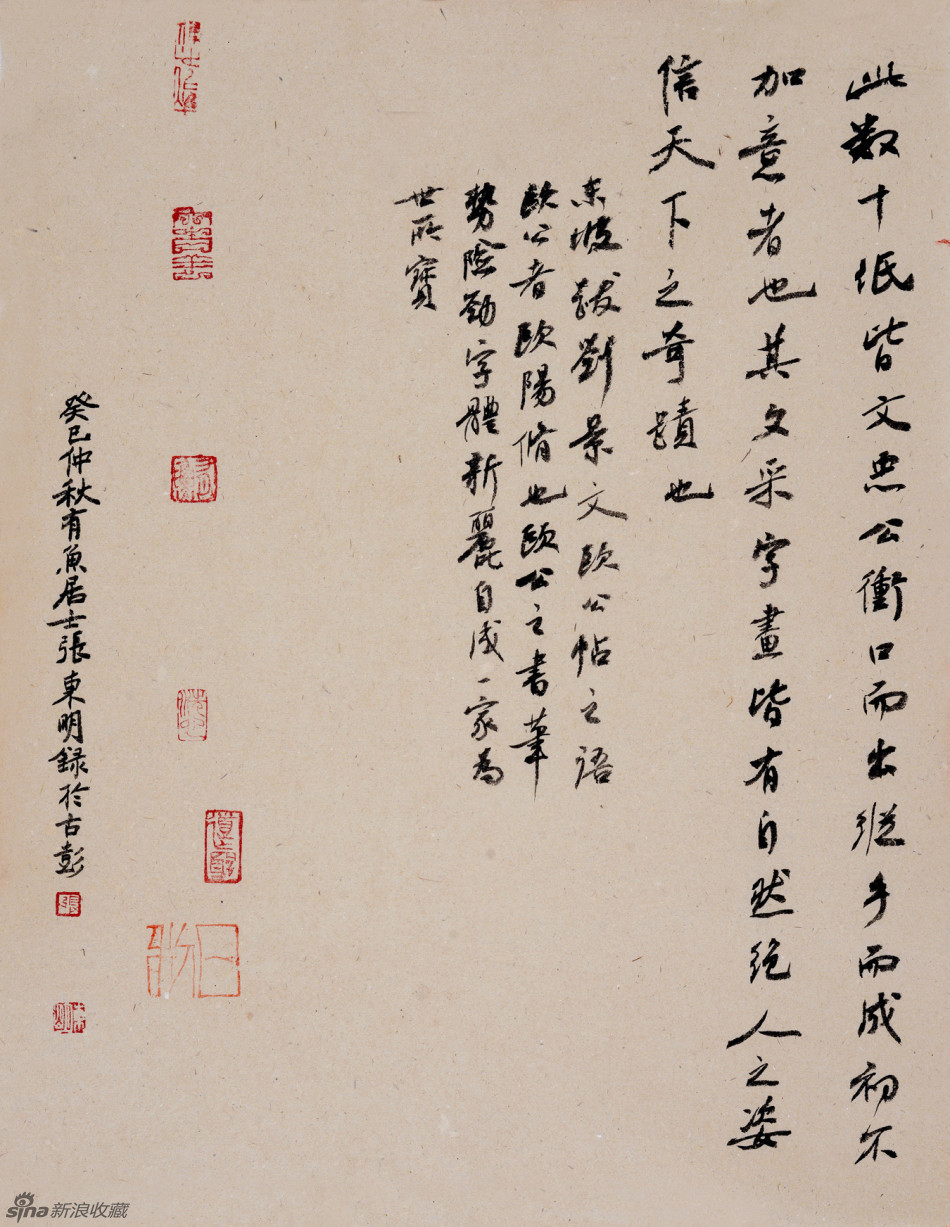 此数十纸皆文忠公衝口而出縱手而成初不
加意者也其文采字畫皆有自然絕人之姿
信天下之奇蹟也
東坡跋劉景文歐公帖之語
歐公者歐陽脩也歐公之書筆
勢險勁字體新麗自成一家為
世所寶
癸巳仲秋有魚居士張東明録於古彭
張
sina新浪收藏